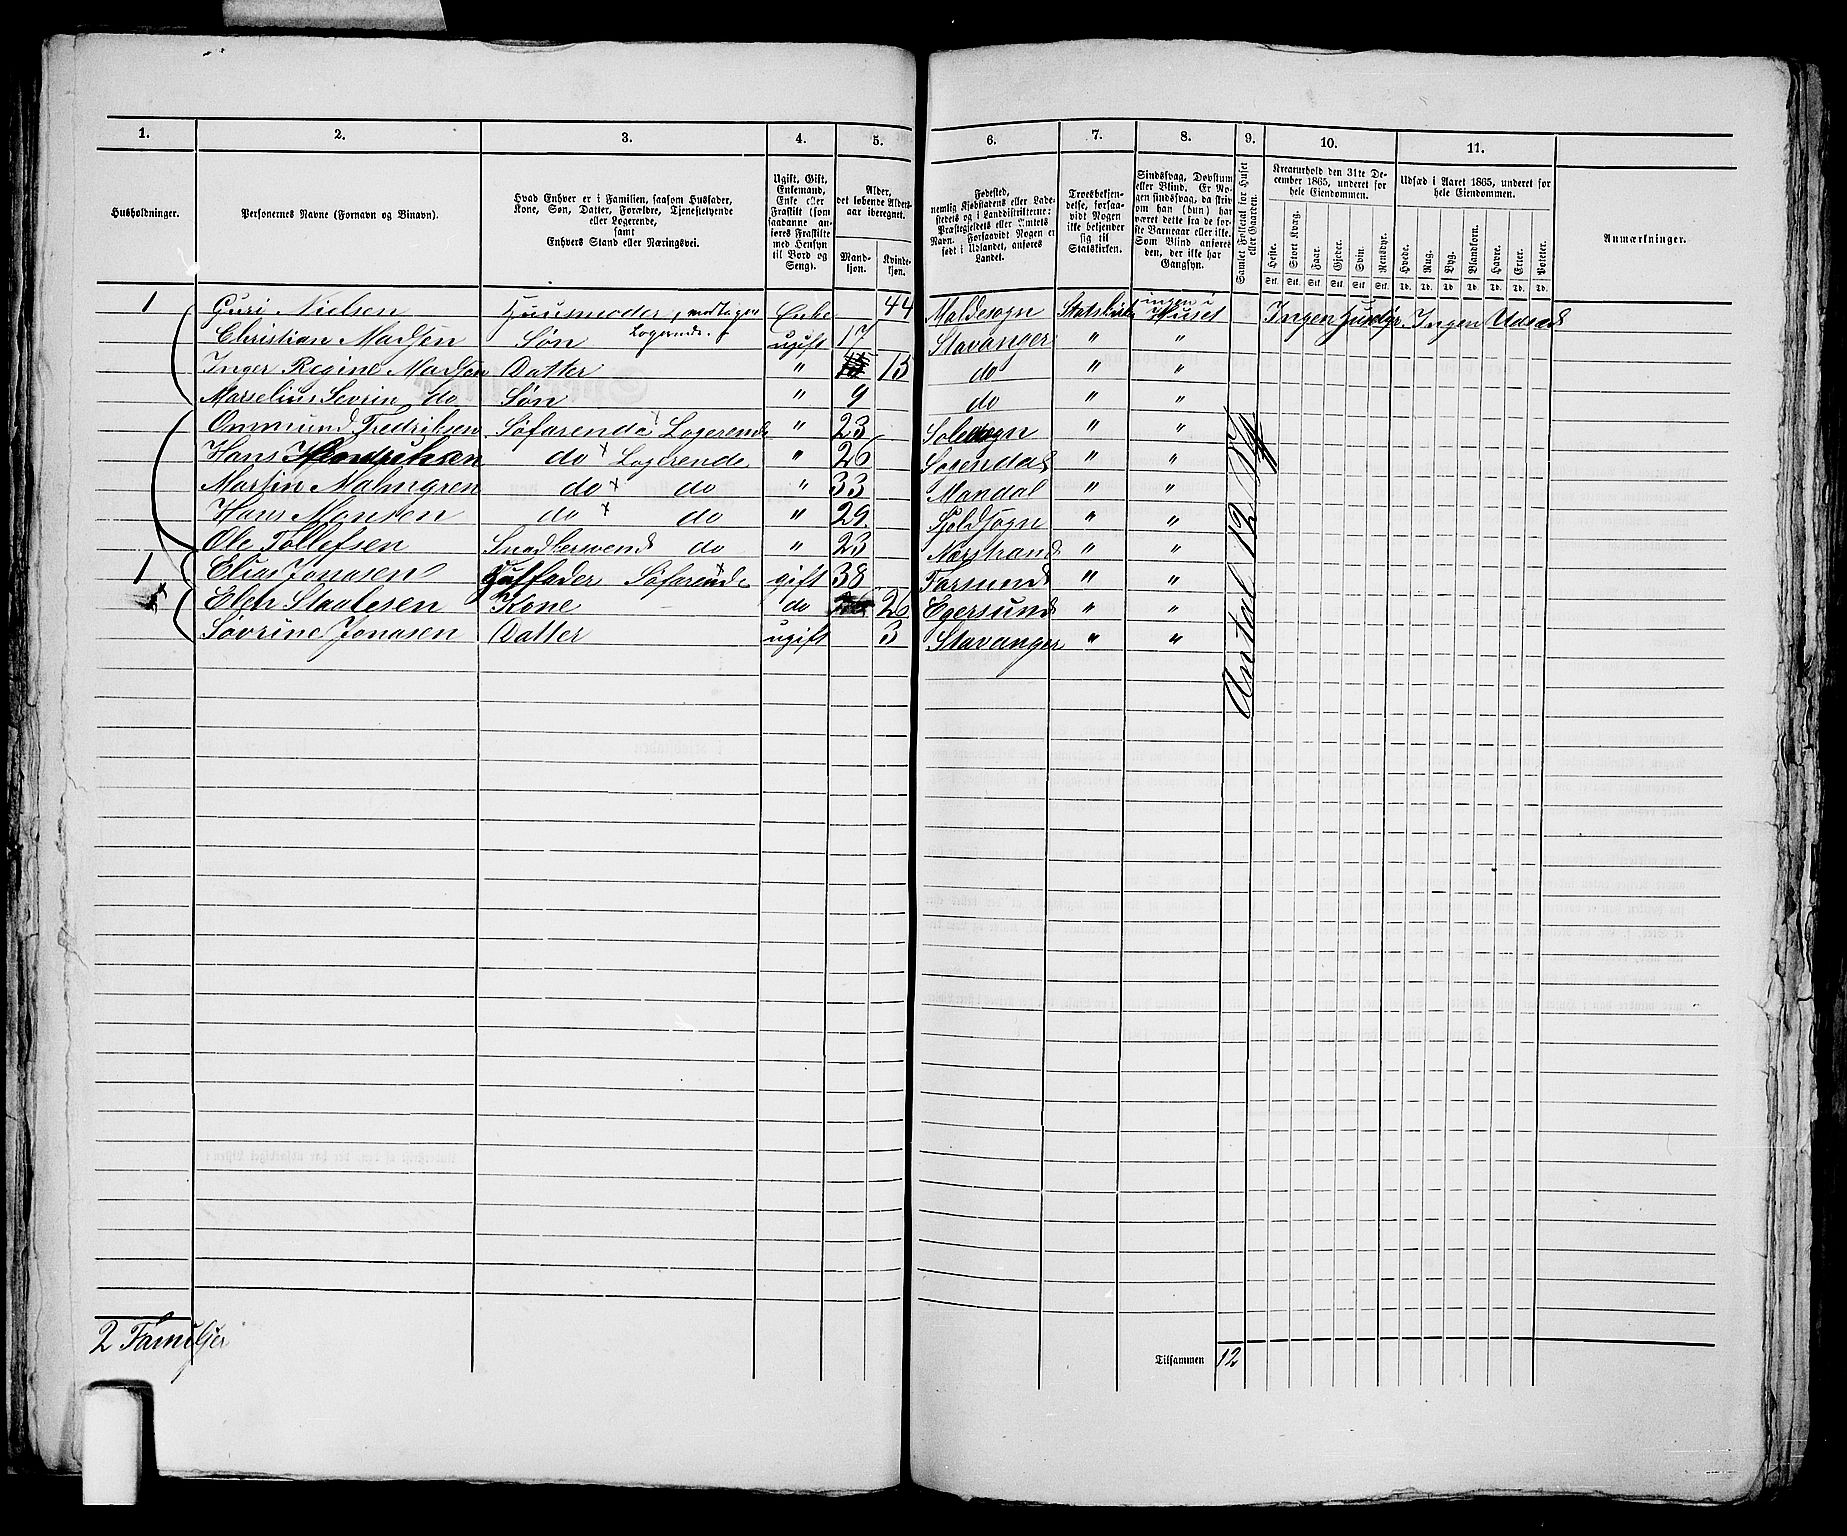 1. 2. 3. 4. 5. 6. 7. 8. 9. 10. 11.
Husholdninger.
Personernes Navne (Fornavn og Binavn).
Hvad Enhver er i Familien, saasom Husfader,
Kone, Søn, Datter, Forældre, Tjenestetyende
eller Logerende,
samt
Enhvers Stand eller Næringsvei.
Ugift, Gift,
Enkemand,
Enke eller
Fraskilt (som
saadanne an-
føres Fraskilte
med Hensyn
til Bord og
Seng).
Alder,
det løbende Alders-
aar iberegnet.
Mand-
kjøn.
Kvinde-
kjøn.
Fødested,
nemlig Kjøbstadens eller Lade-
stedets og i Landdistrikterne:
Præstegjeldets eller Amtets
Navn. Forsaavidt Nogen er
født i Udlandet, anføres
Landet.
Troesbekjen-
delse, forsaa-
vidt Nogen
ikke bekjender
sig til
Statskirken.
Sindssvag, Døvstum
eller Blind. Er No-
gen sindssvag, da skriv
om han (hun) har
været dette fra de før-
ste Barneaar eller ikke.
Som Blind anføres
den, der ikke har
Gangsyn.
Samlet Folketal for Huset
eller Gaarden.
Kreaturhold den 31te De-
cember 1865, underet for
hele Eiendommen.
Heste. Stort Kvæg. Faar. Gjeder. Svin. Rensdyr.
Stk. Stk. Stk. Stk. Stk. Stk.
Udsæd i Aaret 1865, underet for
hele Eiendommen.
Hvede. Rug. Byg. Blandkorn. Havre. Erter. Poteter.
Td. Td. Td. Td. Td. Td. Td.
Anmærkninger.
1 Guri Nielsen Huusmoder, modtager Logerende. Enke 44 Maldesogn Statskirke ingen i Huset Ingen Huusdyr Ingen Udsæd
Christian Madsen Søn ugift 17 Stavanger " "
Inger Regine Madsen Datter " 15 do " "
Marselius Severin do Søn " 9 do " "
Ommund Fredriksen Søfarende Logerende " 23 Solesogn " "
Hans Hendriksen do Logerende " 26 Sogendal " "
Martin Malmgren do do " 33 Mandal " "
Hans Monsen do do " 29 Sjoldsogn " "
Ole Tollefsen Snedkersvend do " 23 Nærstrand " "
1 Elias Jonasen Husfader Søfarende gift 38 Farsund " "
Elen Staalesen Kone do 26 Egersund " "
Søvrine Jonasen Datter ugift 3 Stavanger " "
Antal 12
2 Familjer
Tilsammen 12